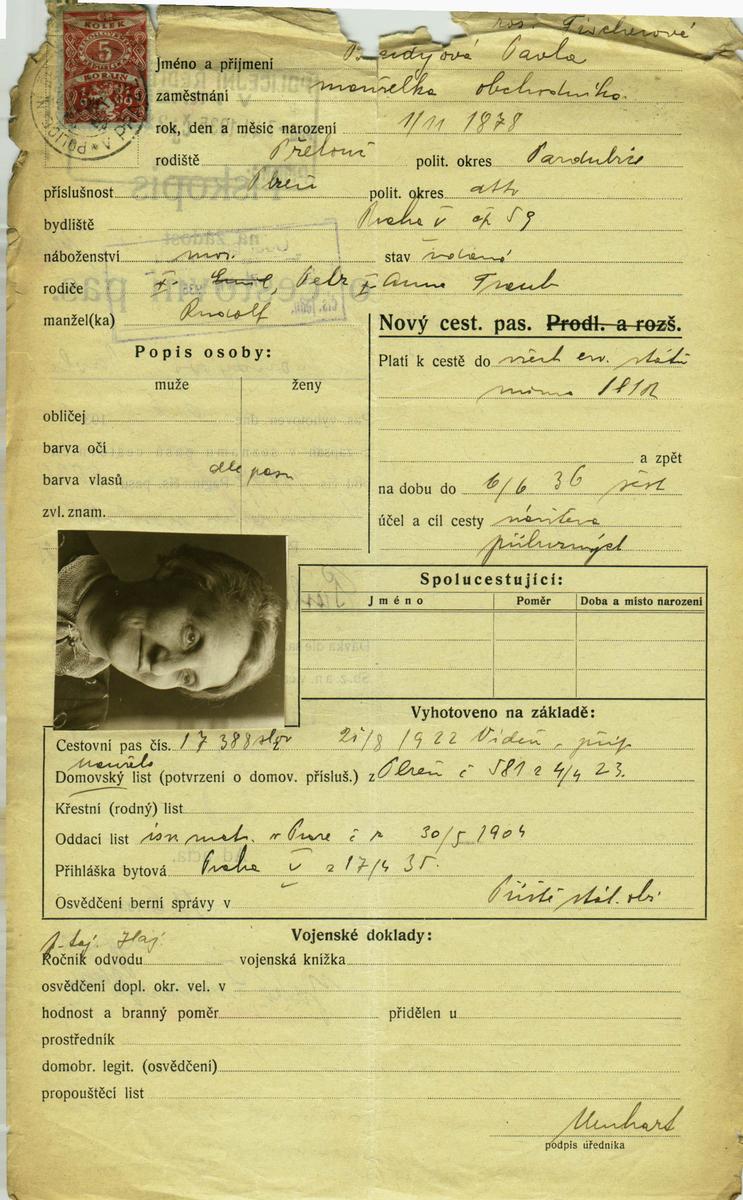 KOLEK
5
KORUN
roz. Fischerová
Jméno a příjmení Pavla
zaměstnání manželka obchodníka.
rok, den a měsíc narození 1/11 1878
rodiště Přelouč polit. okres Pardubice
příslušnost Plzeň polit. okres dtto
bydliště Praha V čp 59
náboženství mos. stav vdaná
rodiče Emil, Petr Anna
manžel(ka) Rudolf
Nový cest. pas. Prodl. a rozš.
Popis osoby:
muže ženy
obličej
barva očí
barva vlasů dle pasu
zvl. znam.
Platí k cestě do všech ev. států
mimo
a zpět
na dobu do 6/6 36
účel a cíl cesty návštěva
příbuzných
Spolucestující:
Jméno Poměr Doba a místo narození
Vyhotoveno na základě:
Cestovní pas čís. 17388 25/8 1922 Vídeň
manžela
Domovský list (potvrzení o domov. přísluš.) z Plzeň č 581 z 4/4 23.
Křestní (rodný) list
Oddací list isr. mat. v Praze č 30/5 1904
Přihláška bytová Praha V z 17/4 35.
Osvědčení berní správy v
Vojenské doklady:
Ročník odvodu vojenská knížka
osvědčení dopl. okr. vel. v
hodnost a branný poměr přidělen u
prostředník
domobr. legit. (osvědčení)
propouštěcí list
Menhart
podpis úředníka